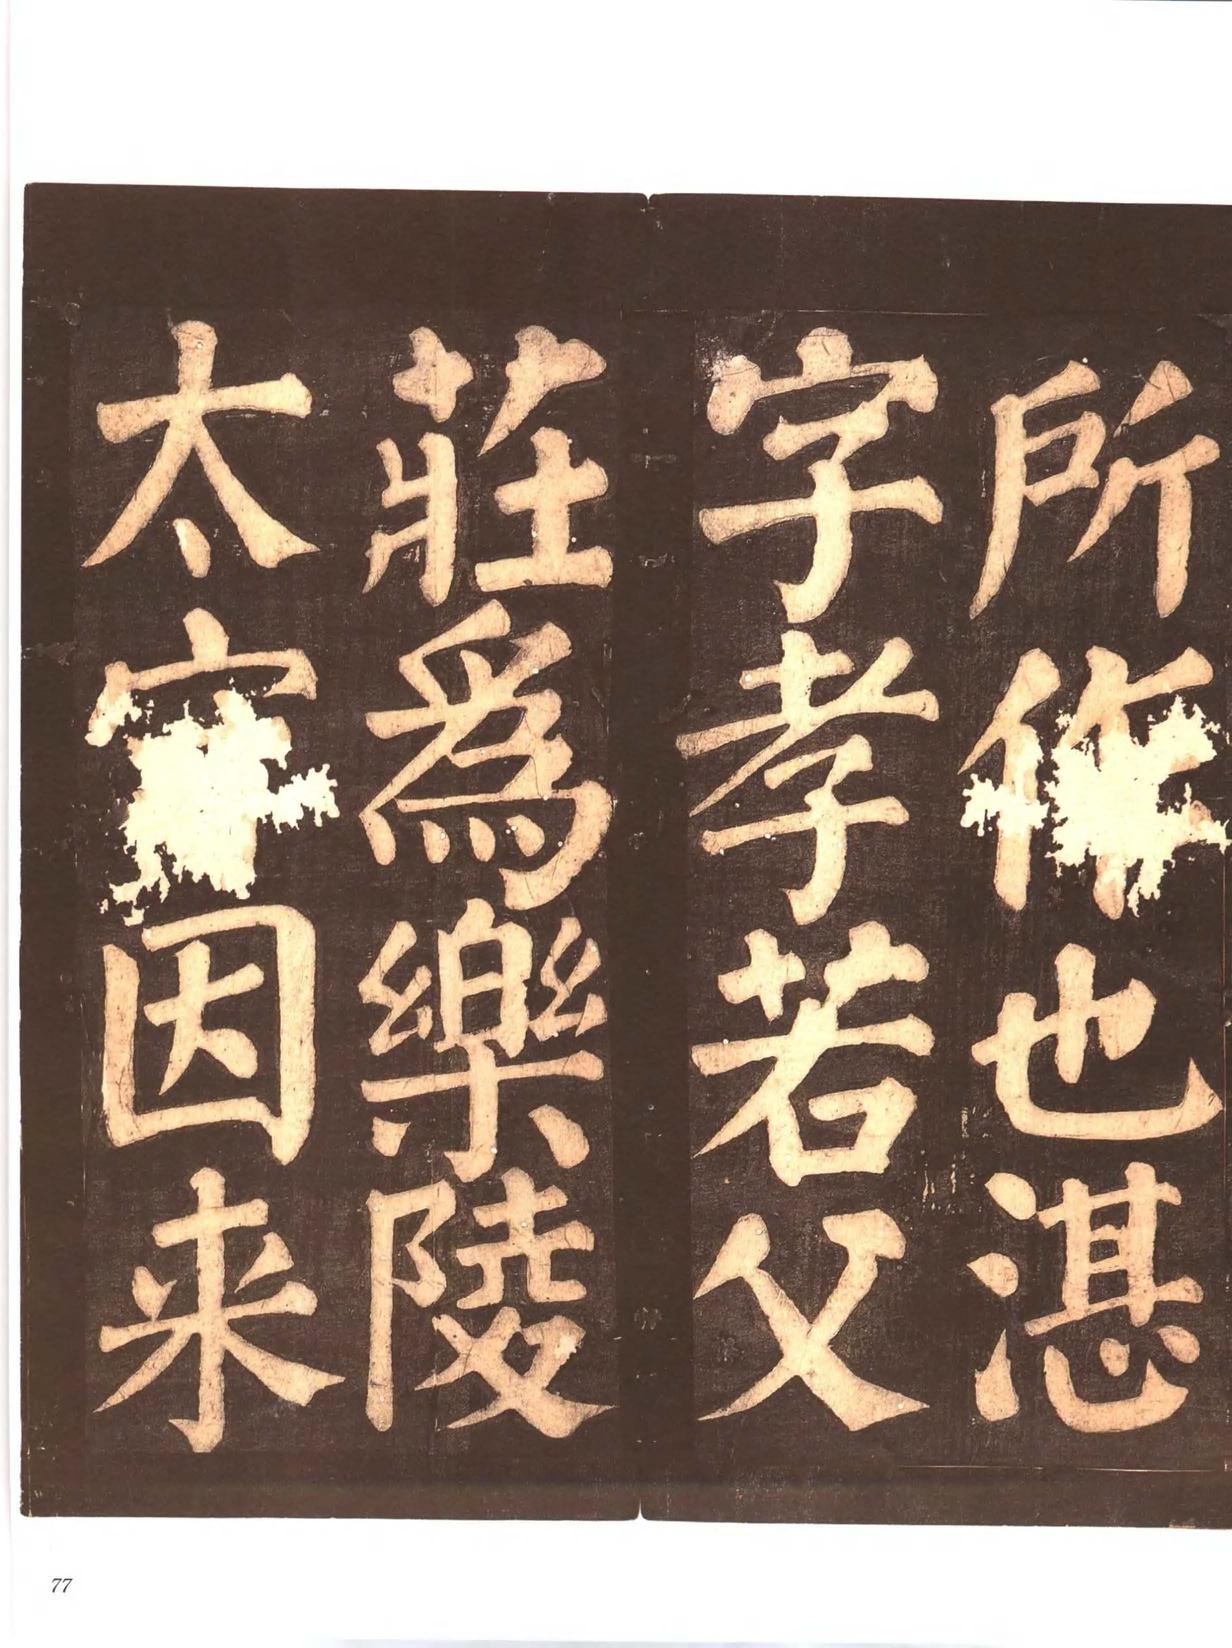 所作也湛
字孝若父
莊為樂陵
太守因来
77